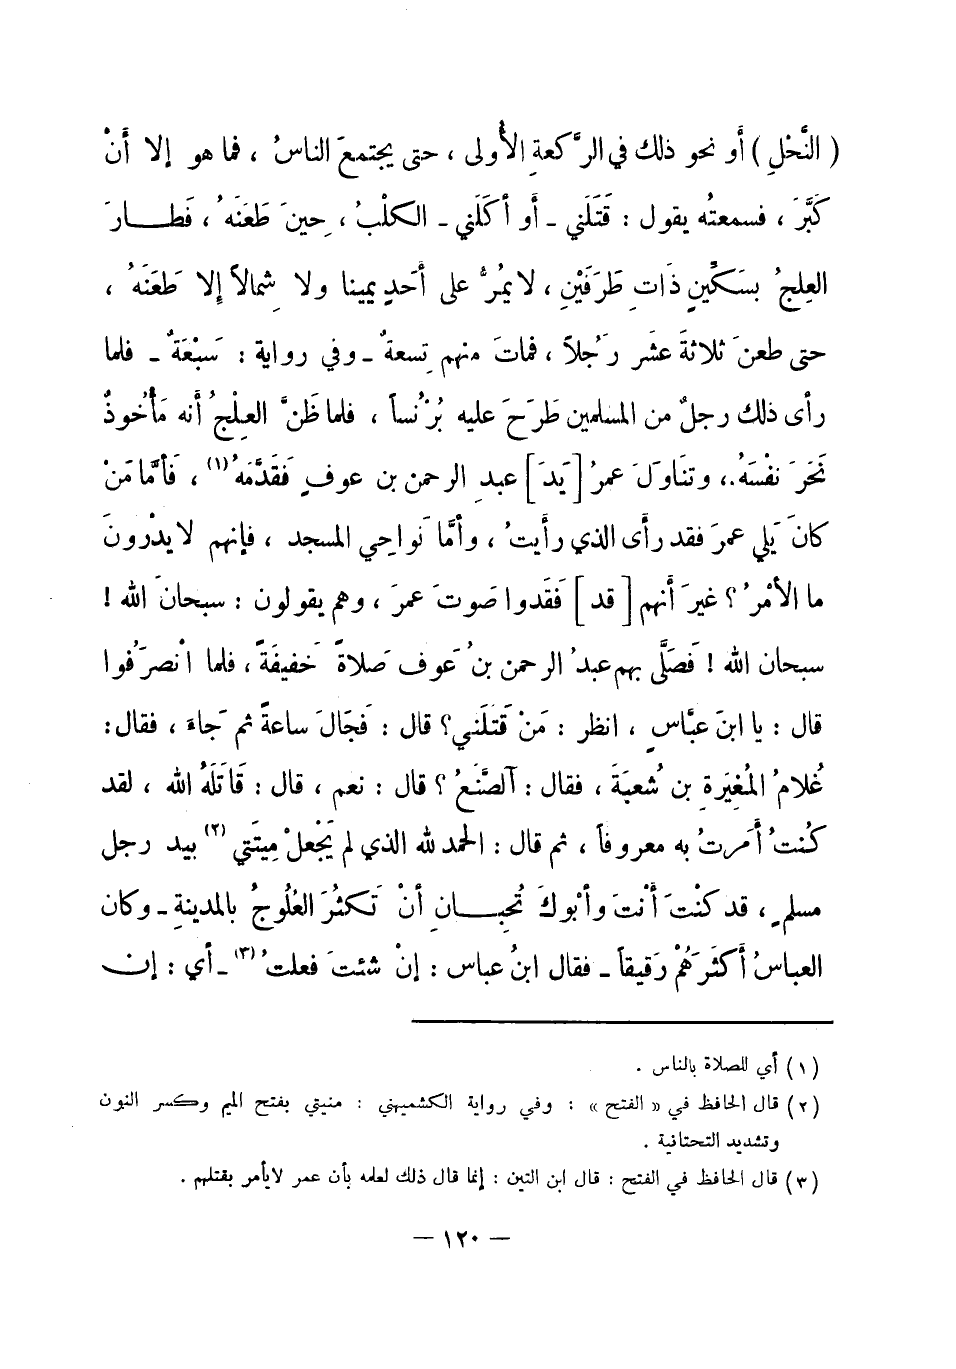 ( النَّحْلِ ) أو نحو ذلك في الرَّكعةِ الأُولى ، حتى يجتمعَ الناسُ ، فما هو إلا أَنْ
كَبَّرَ ، فسمعتُه يقول : قَتَلَني ـ أو أكَلَني ـ الكلْبُ ، حِينَ طَعَنَهُ ، فَطـارَ
العِلجُ بسَكِّينٍ ذَاتِ طَرَفَيْنِ ، لا يمُرُّ على أَحَدٍ يمينا ولا شِمالاً إلا طعَنَهُ ،
حتى طعنَ ثلاثةَ عشَر رَجُلاً ، فماتَ منهم تِسعةٌ ـ وفي رواية : سَبْعَةٌ ـ فلما
رأى ذلك رجلٌ من المسلمين طَرَحَ عليه بُرْنُساً ، فلما ظَنَّ العِلْجُ أَنه مَأْخُوذٌ
نَحَرَ نفْسَهُ ، وتنَاوَلَ عمرُ [ يَدَ ] عبدِ الرحمن بن عوفٍ فَقَدَّمَهُ (١) ، فَأمَّا مَنْ
كانَ يَلي عمرَ فقد رأى الذي رأَيتُ ، وأمَّا نَواحِي المسجد ، فإنهم لا يدْرونَ
ما الأمْرُ ؟ غيرَ أَنهم [ قد ] فَقَدوا صَوتَ عمرَ ، وهم يقولون : سبحانَ الله !
سبحان الله ! فَصَلَّى بهم عبدُ الرحمن بنُ عَوف صَلاةً خَفيفَةً ، فلما انْصرَفُوا
قال : يا ابنَ عبَّاسٍ ، انظر : مَنْ قَتَلَني ؟ قال : فَجَالَ ساعةً ثم جَاءَ ، فقال :
غُلامُ المُغِيَرةِ بن شُعبَةَ ، فقال : آلصَّنَعُ ؟ قال : نعم ، قال : قَاتَلَهُ الله ، لقد
كُنتُ أَمَرتُ به معروفاً ، ثم قال : الحمد لله الذي لم يَجْعلْ مِيتَتي (٢) بيد رجل
مسلمٍ ، قد كنْتَ أَنْتَ وأبْوكَ تُحِبـانِ أنْ تَكثُرَ العُلُوجُ بالمدينةِ ـ وكان
العباسُ أَكثَرَهُمْ رَقيقاً ـ فقال ابنُ عباس : إنْ شئتَ فعلتُ (٣) ـ أي : إن
(١) أي للصلاة بالناس .
(٢) قال الحافظ في « الفتح » : وفي رواية الكشميهني : منيتي بفتح الميم وكسر النون
وتشديد التحتانية .
(٣) قال الحافظ في الفتح : قال ابن التين : إنما قال ذلك لعلمه بأن عمر لا يأمر بقتلهم .
— ١٢٠ —